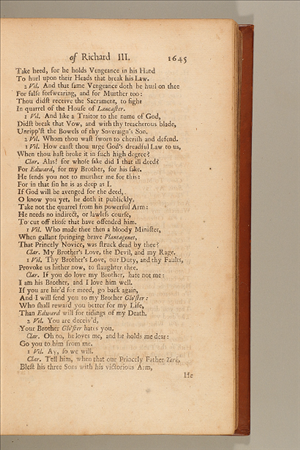 of Richard III. 1645
Take heed, for he holds Vengeance in his Hand
To hurl upon their Heads that break his Law.
2 Vil. And that same Vengeance doth he hurl on thee
For false forswearing, and for Murther too:
Thou didst receive the Sacrament, to fight
In quarrel of the House of Lancaster.
1 Vil. And like a Traitor to the name of God,
Didst break that Vow, and with thy treacherous blade,
Unripp'st the Bowels of thy Soveraign's Son.
2 Vil. Whom thou wast sworn to cherish and defend.
1 Vil. How canst thou urge God's dreadful Law to us,
When thou hast broke it in such high degree?
Clar. Alas! for whose sake did I that ill deed?
For Edward, for my Brother, for his sake.
He sends you not to murther me for this:
For in that sin he is as deep as I.
If God will be avenged for the deed,
O know you yet, he doth it publickly.
Take not the quarrel from his powerful Arm:
He needs no indirect, or lawless course,
To cut off those that have offended him.
1 Vil. Who made thee then a bloody Minister,
When gallant springing brave Plantagenet,
That Princely Novice, was struck dead by thee?
Clar. My Brother's Love, the Devil, and my Rage.
1 Vil. Thy Brother's Love, our Duty, and thy Faults,
Provoke us hither now, to slaughter thee.
Clar. If you do love my Brother, hate not me:
I am his Brother, and I love him well.
If you are hir'd for meed, go back again,
And I will send you to my Brother Glo'ster:
Who shall reward you better for my Life,
Than Edward will for tidings of my Death.
2 Vil. You are deceiv'd,
Your Brother Glo'ster hates you.
Clar. Oh no, he loves me, and he holds me dear:
Go you to him from me.
1 Vil. Ay, so we will.
Clar. Tell him, when that our Princely Father York,
Blest his three Sons with his victorious Arm,
He